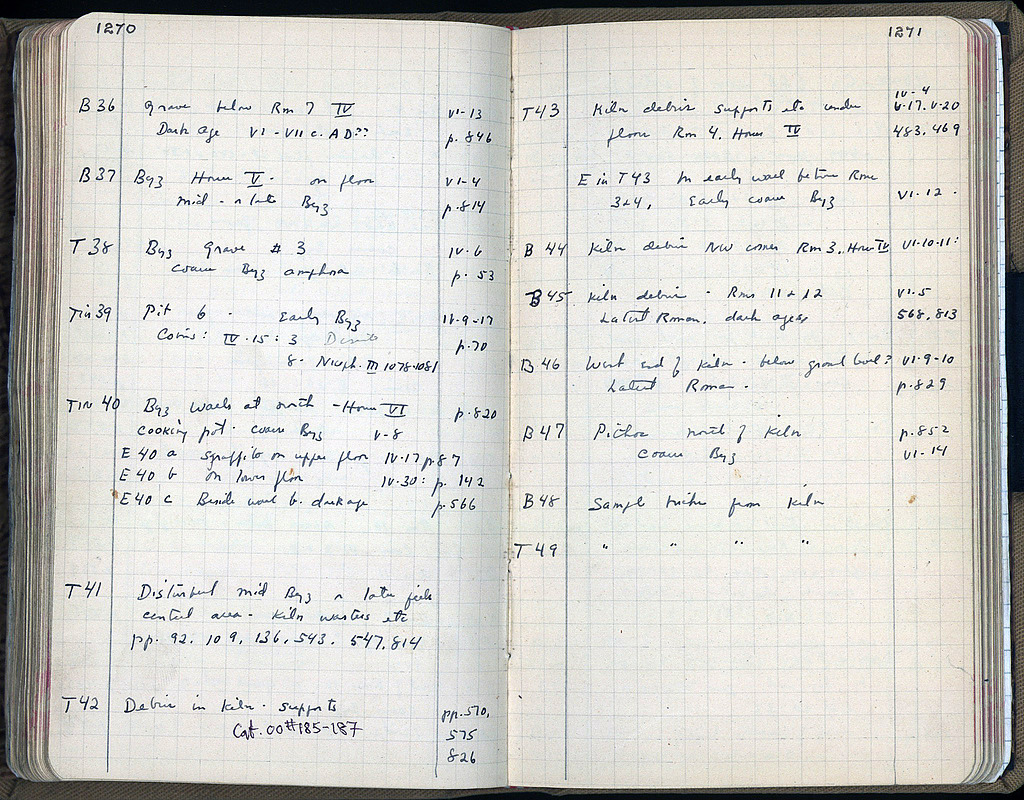 1270
B 36 Grave below Rm 7 IV VI-13
Dark age VI-VII c. AD?? p. 846
B 37 Byz House V - on floor VI-4
mid - n late Byz p. 814
T 38 Byz grave # 3 IV-6
coarse Byz amphora p. 53
Tin 39 Pit 6 - Early Byz IV-9-17
Coins: IV-15: 3 p. 70
8- Niceph. III 1078-1081
Tin 40 Byz walls at north - House VI p. 820
cooking pot - coarse Byz V-8
E 40 a sgraffito on upper floor IV-17 p. 87
E 40 b on lower floor IV-30: p. 142
E 40 c Beside wall b. p. 566
T 41 Disturbed mid Byz n late
central area - kiln wasters etc
pp. 92, 109, 136, 543, 547, 814
T 42 Debris in kiln - supports pp. 570,
Cat. 00 #185-187 575
826
1271
IV-4
T 43 Kiln debris supports etc under V-17, V-20
floor Rm 4, House IV 483, 469
E in T 43 In early wall between Rms
3+4, Early coarse Byz VI-12 -
B 44 Kiln debris NW corner Rm 3, House IV VI-10-11:
B 45 Kiln debris - Rms 11 + 12 VI-5
Latest Roman, dark ages 568, 813
B 46 West end of kiln - below ground level? VI-9-10
Latest Roman - p. 829
B 47 Pithos north of kiln p. 852
coarse Byz VI-14
B 48 Sample bricks from kiln
T 49 " " " "